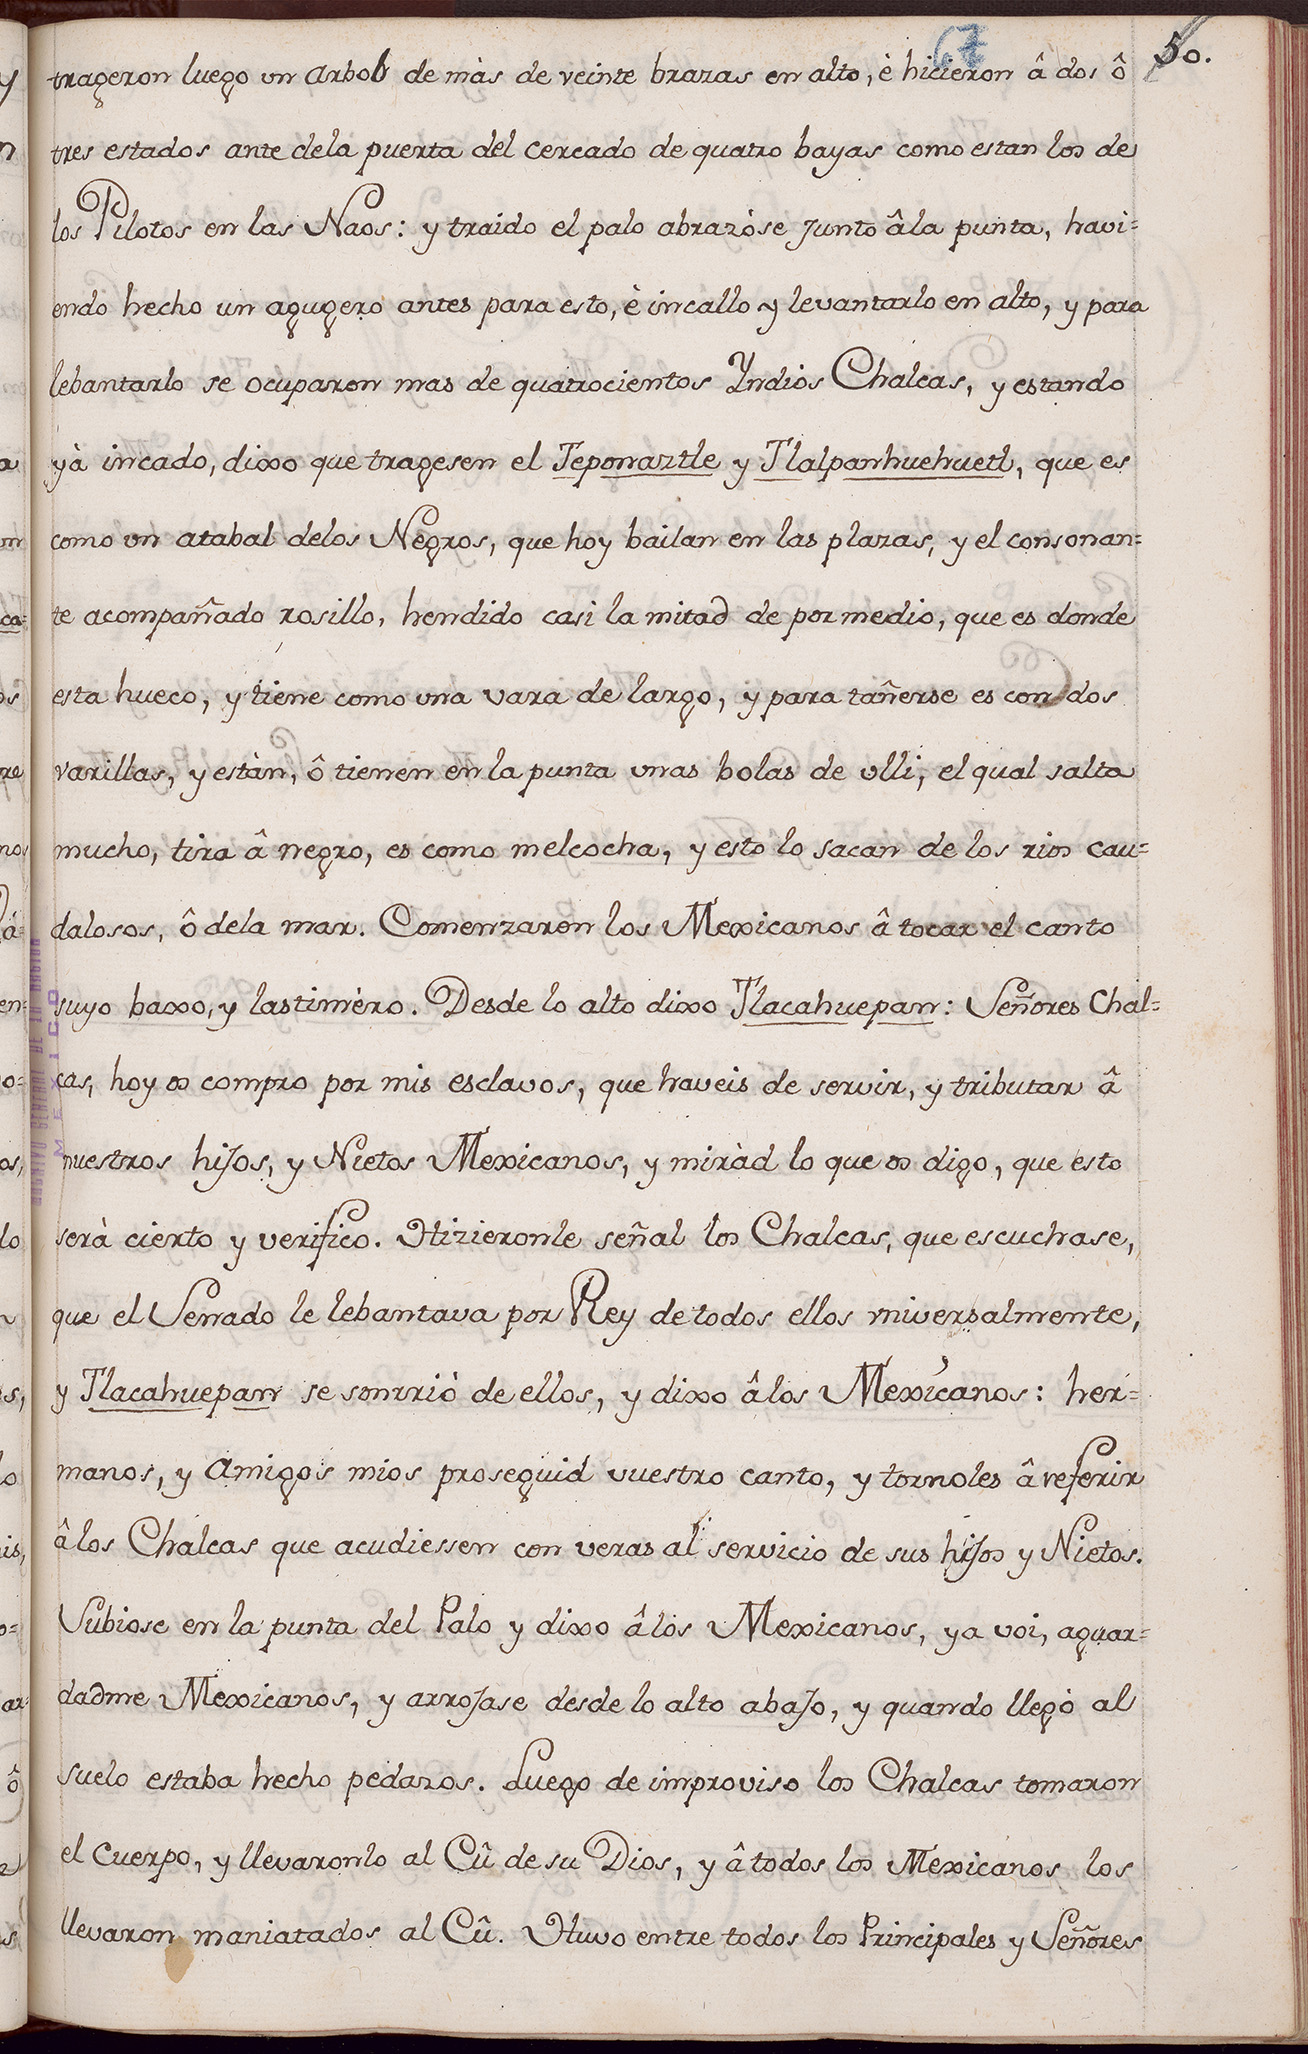 67 50.
trageron luego vn arbol de màs de veinte brazas en alto, è hicieron â dos ô
tres estados ante dela puerta del cercado de quatro bayas como estan los de
los Pilotos en las Naos: y traido el palo abrazòse junto âla punta, havi=
endo hecho un agugero antes para esto, è incallo y levantarlo en alto, y para
lebantarlo se ocuparon mas de quatrocientos Yndios Chalcas, y estando
yà incado, dixo que tragesen el Teponaztle y Tlalpanhuehuetl, que es
como vn atabal delos Negros, que hoy bailan en las plazas, y el consonan=
te acompañado rosillo, hendido casi la mitad de por medio, que es donde
esta hueco, y tiene como vna vara de largo, y para tañerse es con dos
varillas, y estàn, ô tienen en la punta vnas bolas de vlli, el qual salta
mucho, tira â negro, es como melcocha, y esto lo sacan de los rios cau=
dalosos, ô dela mar. Comenzaron los Mexicanos â tocar el canto
suyo baxo, y lastimèro. Desde lo alto dixo Tlacahuepan: Señores Chal=
cas, hoy os compro por mis esclavos, que haveis de servir, y tributar â
nuestros hijos, y Nietos Mexicanos, y miràd lo que os digo, que esto
serà cierto y verifico. Hizieronle señal los Chalcas, que escuchase,
que el Senado le lebantava por Rey de todos ellos vniversalmente,
y Tlacahuepan se sonrriò de ellos, y dixo âlos Mexicanos: her=
manos, y amigos mios proseguid vuestro canto, y tornoles â referir
âlos Chalcas que acudiessen con veras al servicio de sus hijos y Nietos.
Subiose en la punta del Palo y dixo âlos Mexicanos, ya voi, aguar=
dadme Mexicanos, y arrojase desde lo alto abajo, y quando llegò al
suelo estaba hecho pedazos. Luego de improviso los Chalcas tomaron
el cuerpo, y llevaronlo al Cû de su Dios, y â todos los Mexicanos los
llevaron maniatados al Cû. Huvo entre todos los Principales y Señores
ARCHIVO GENERAL DE LA NACION
MEXICO